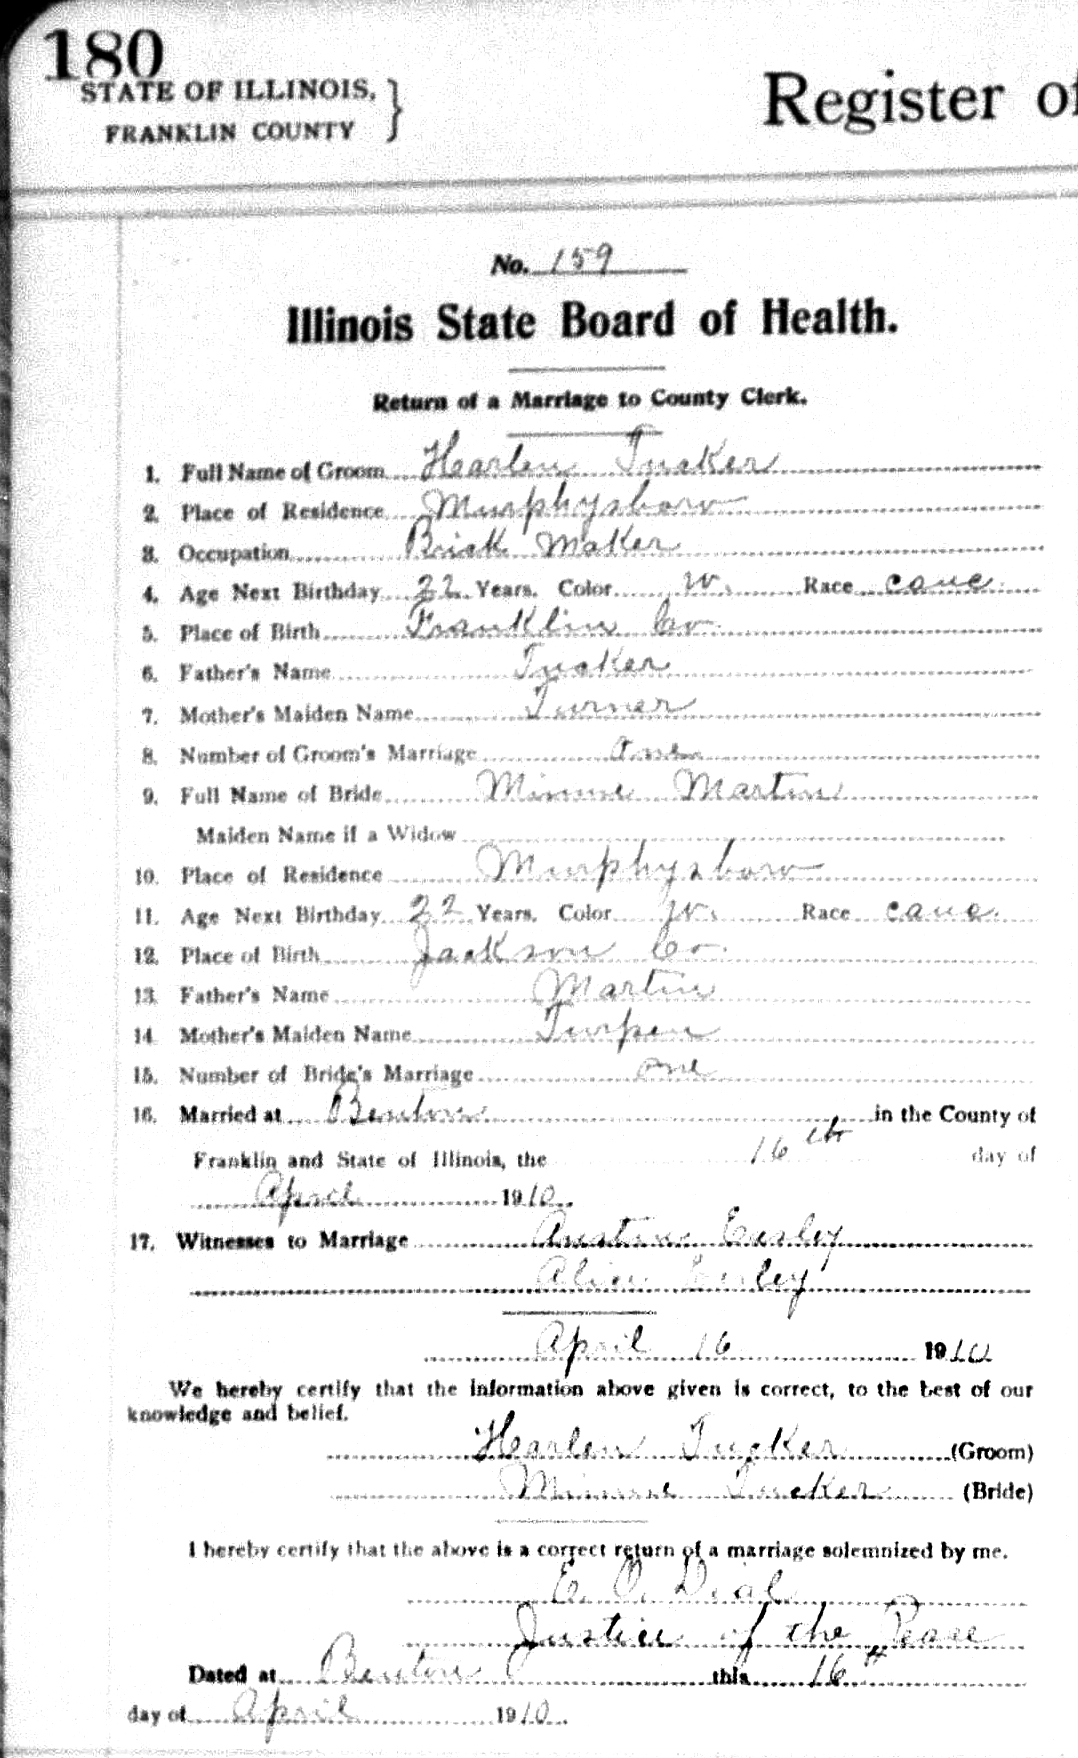 180
STATE OF ILLINOIS,
FRANKLIN COUNTY }
Register of
No. 159
Illinois State Board of Health.
Return of a Marriage to County Clerk.
1. Full Name of Groom Harlen Tucker
2. Place of Residence Murphysboro
3. Occupation Brick Maker
4. Age Next Birthday 22 Years. Color w. Race cauc
5. Place of Birth Franklin Co
6. Father's Name Tucker
7. Mother's Maiden Name Turner
8. Number of Groom's Marriage One
9. Full Name of Bride Minnie Martin
Maiden Name if a Widow
10. Place of Residence Murphysboro
11. Age Next Birthday 22 Years. Color w. Race cauc.
12. Place of Birth Jackson Co.
13. Father's Name Martin
14. Mother's Maiden Name Turpen
15. Number of Bride's Marriage one
16. Married at Benton in the County of
Franklin and State of Illinois, the 16th day of
April 1910.
17. Witnesses to Marriage Austin Easley
Alice Easley
April 16 1910
We hereby certify that the information above given is correct, to the best of our
knowledge and belief.
Harlen Tucker (Groom)
Minnie Tucker (Bride)
I hereby certify that the above is a correct return of a marriage solemnized by me.
E. O. Dial
Justice of the Peace
Dated at Benton this 16th
day of April 1910.